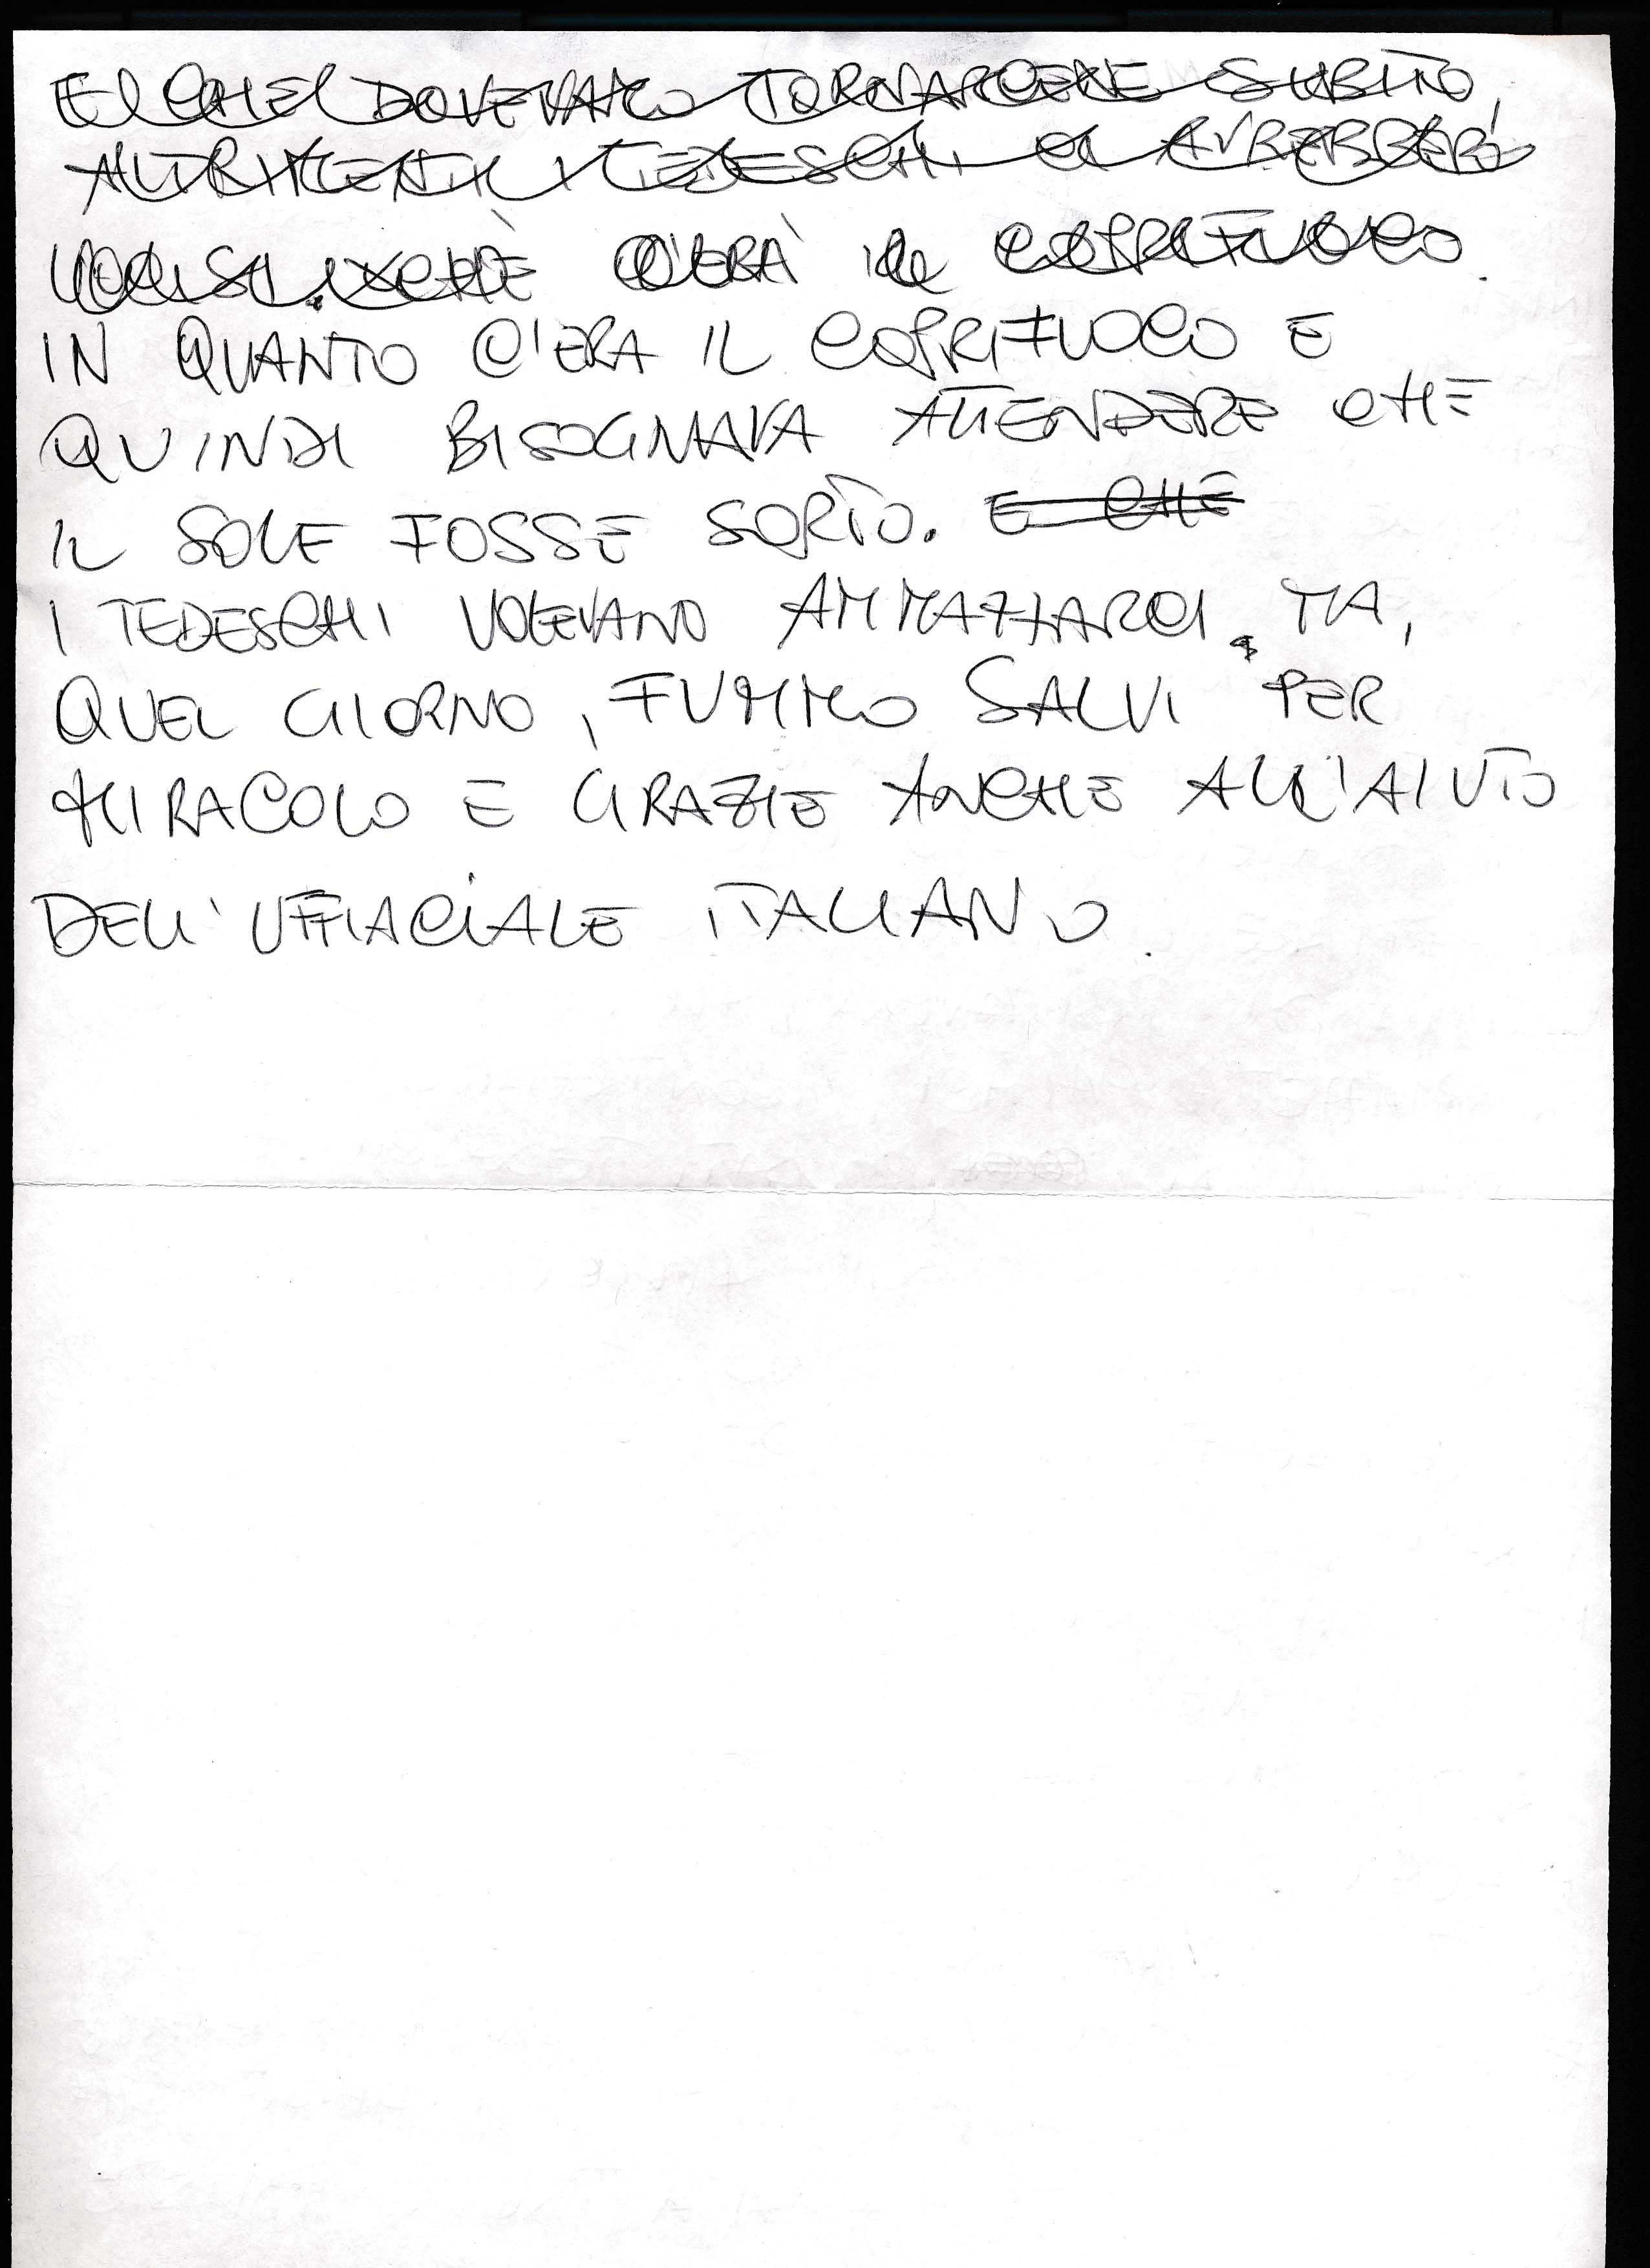 E CHE DOVEVAMO TORNARCENE SUBITO,
ALTRIMENTI I TEDESCHI CI AVREBBERO
UCCISI. XCHÈ C'ERA IL COPRIFUOCO.
IN QUANTO C'ERA IL COPRIFUOCO E
QUINDI BISOGNAVA ATTENDERE CHE
IL SOLE FOSSE SORTO. E CHE
I TEDESCHI VOLEVANO AMMAZZARCI. MA,
QUEL GIORNO, FUMMO SALVI PER
MIRACOLO E GRAZIE ANCHE ALL'AIUTO
DELL'UFFIACIALE ITALIANO.